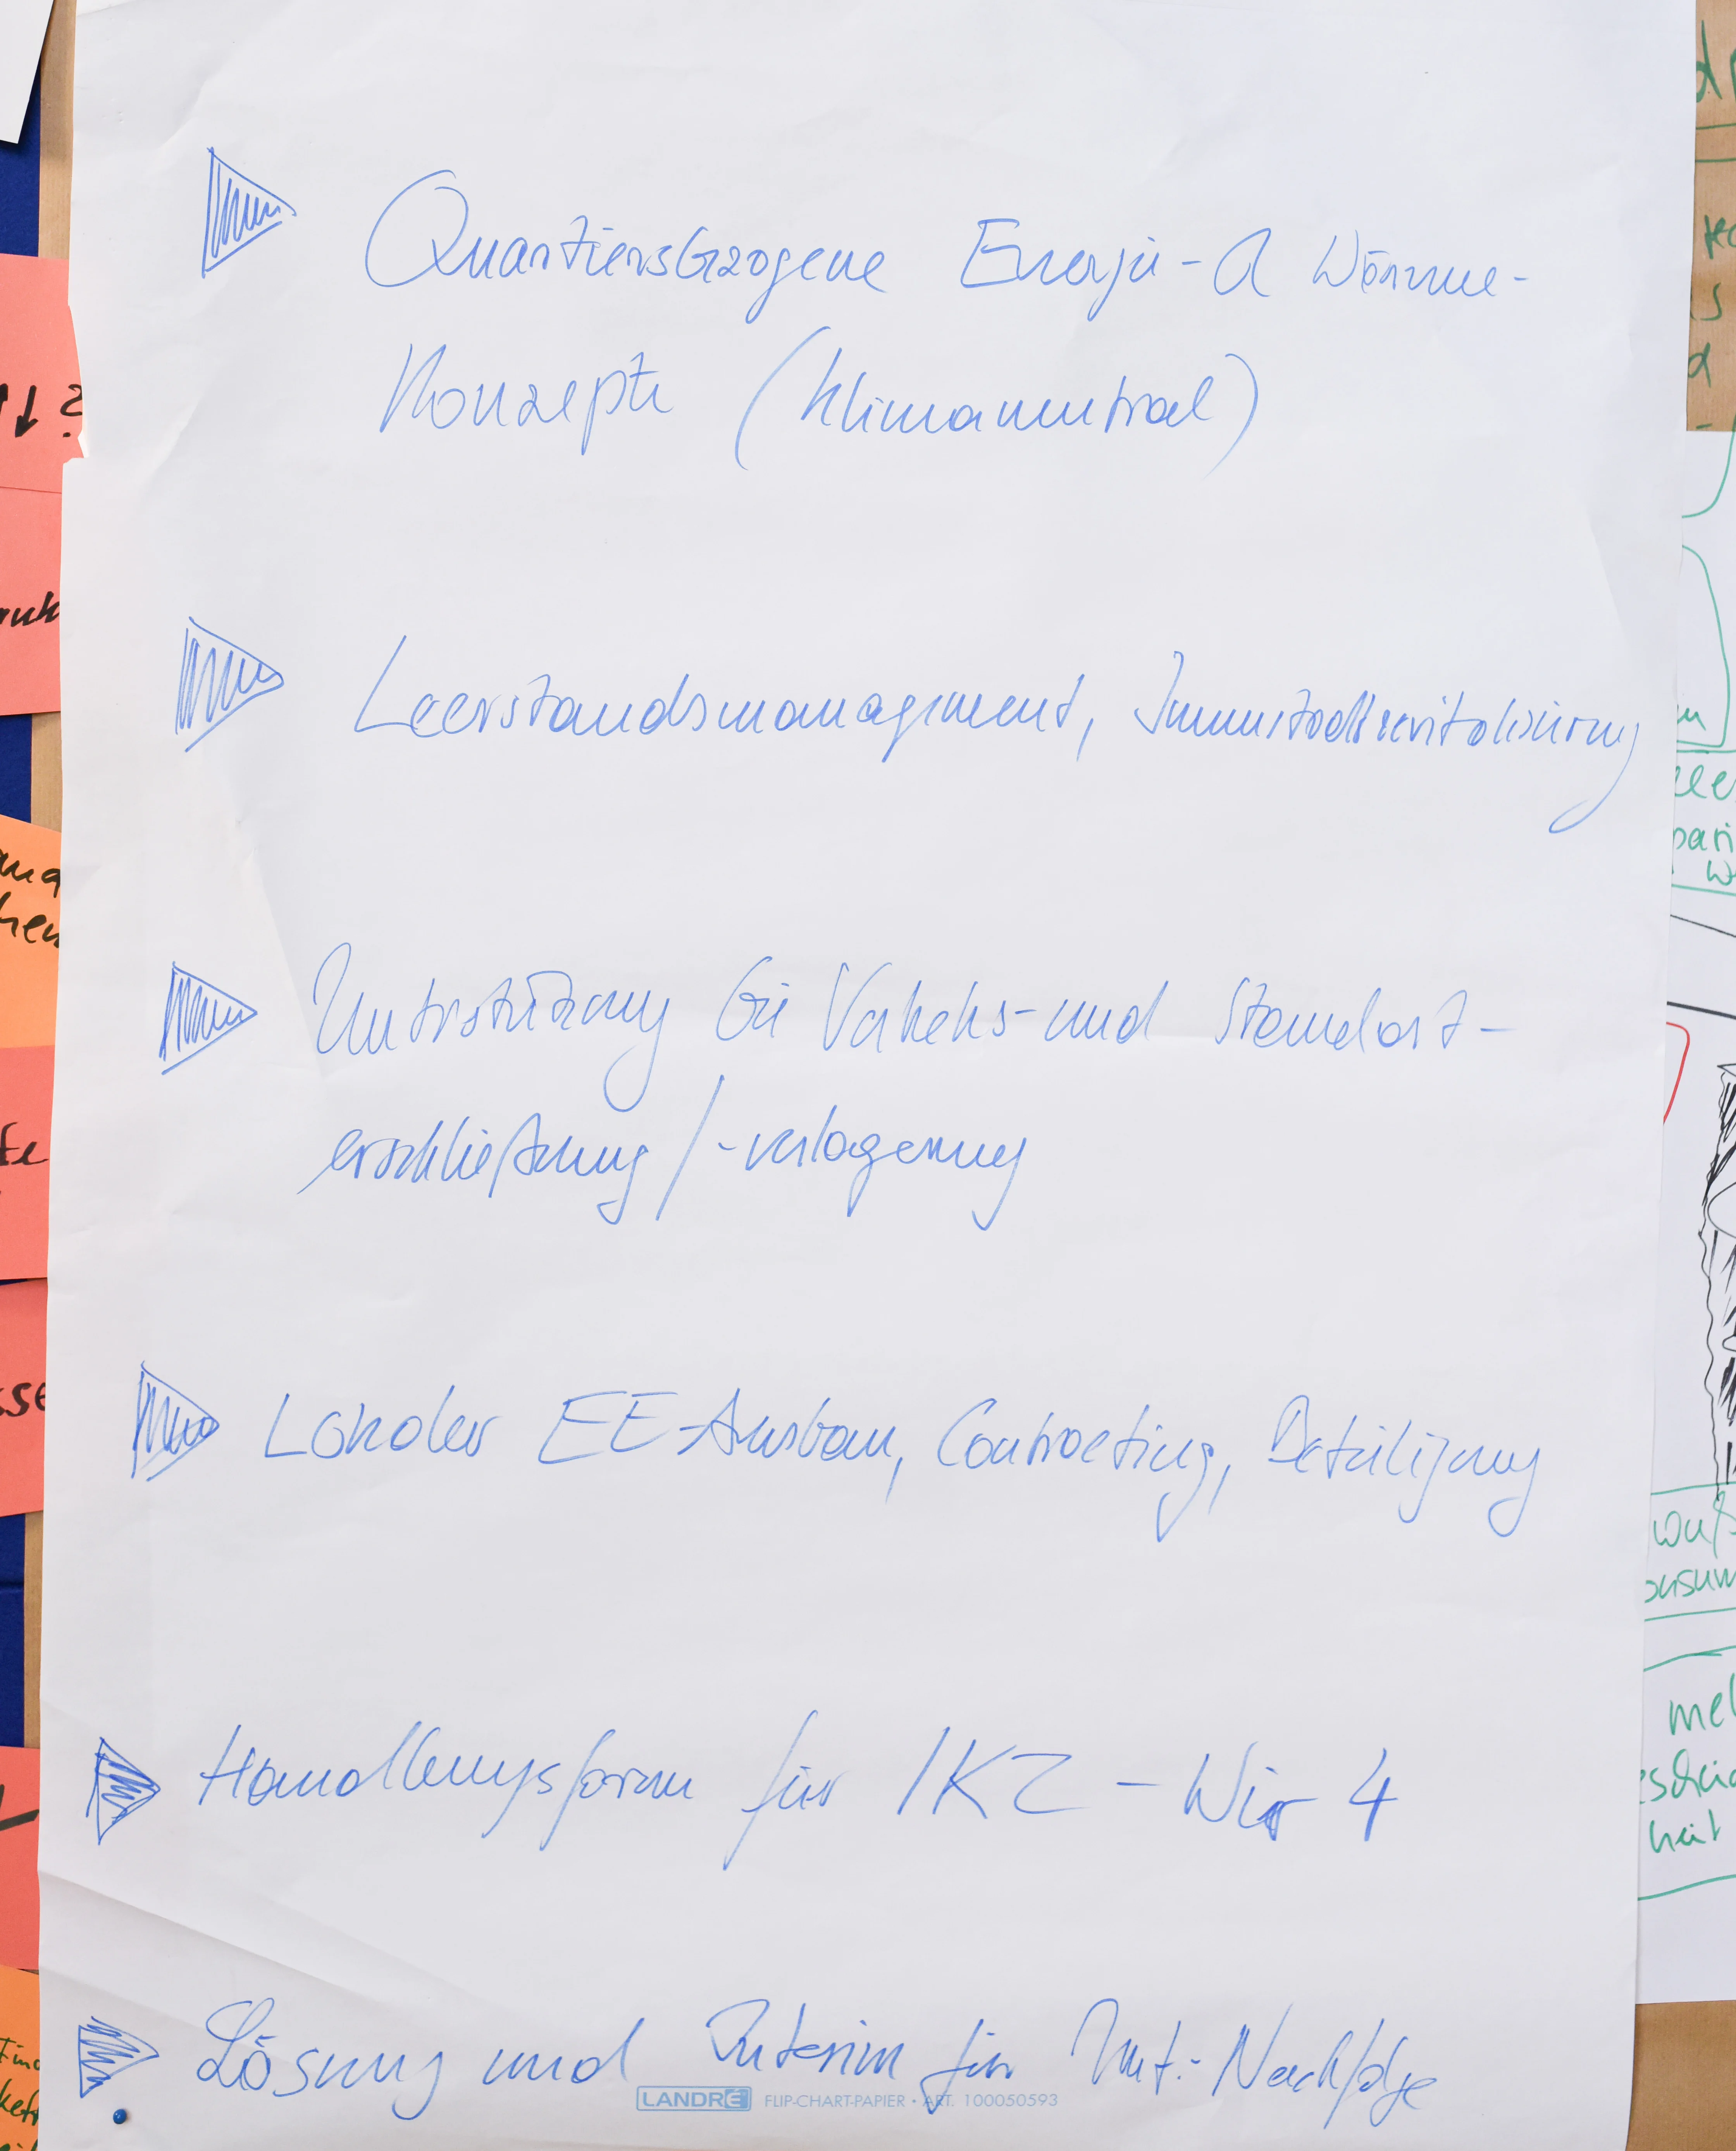 Quartiersbezogene Energie- & Wärme-
Konzepte (klimaneutral)
Leerstandsmanagement, Innenstadtrevitalisierung
Unterstützung bei Verkehrs- und Standort-
erschließung / -verlagerung
Lokaler EE-Ausbau, Contracting, Beteiligung
Handlungsform für IKZ - Wir 4
Lösung und Interim für Unt.-Nachfolge
LANDRÉ FLIP-CHART-PAPIER • ART. 100050593